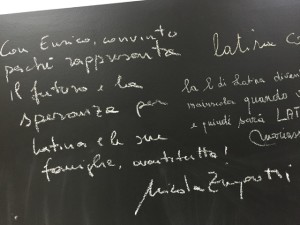 Con Enrico, convinto
perché rappresenta
il futuro e la
speranza per
Latina e le sue
famiglie, avantitutta!
Nicola
latina
la l di latina diven
maiuscola quando
e quindi sarà LAT